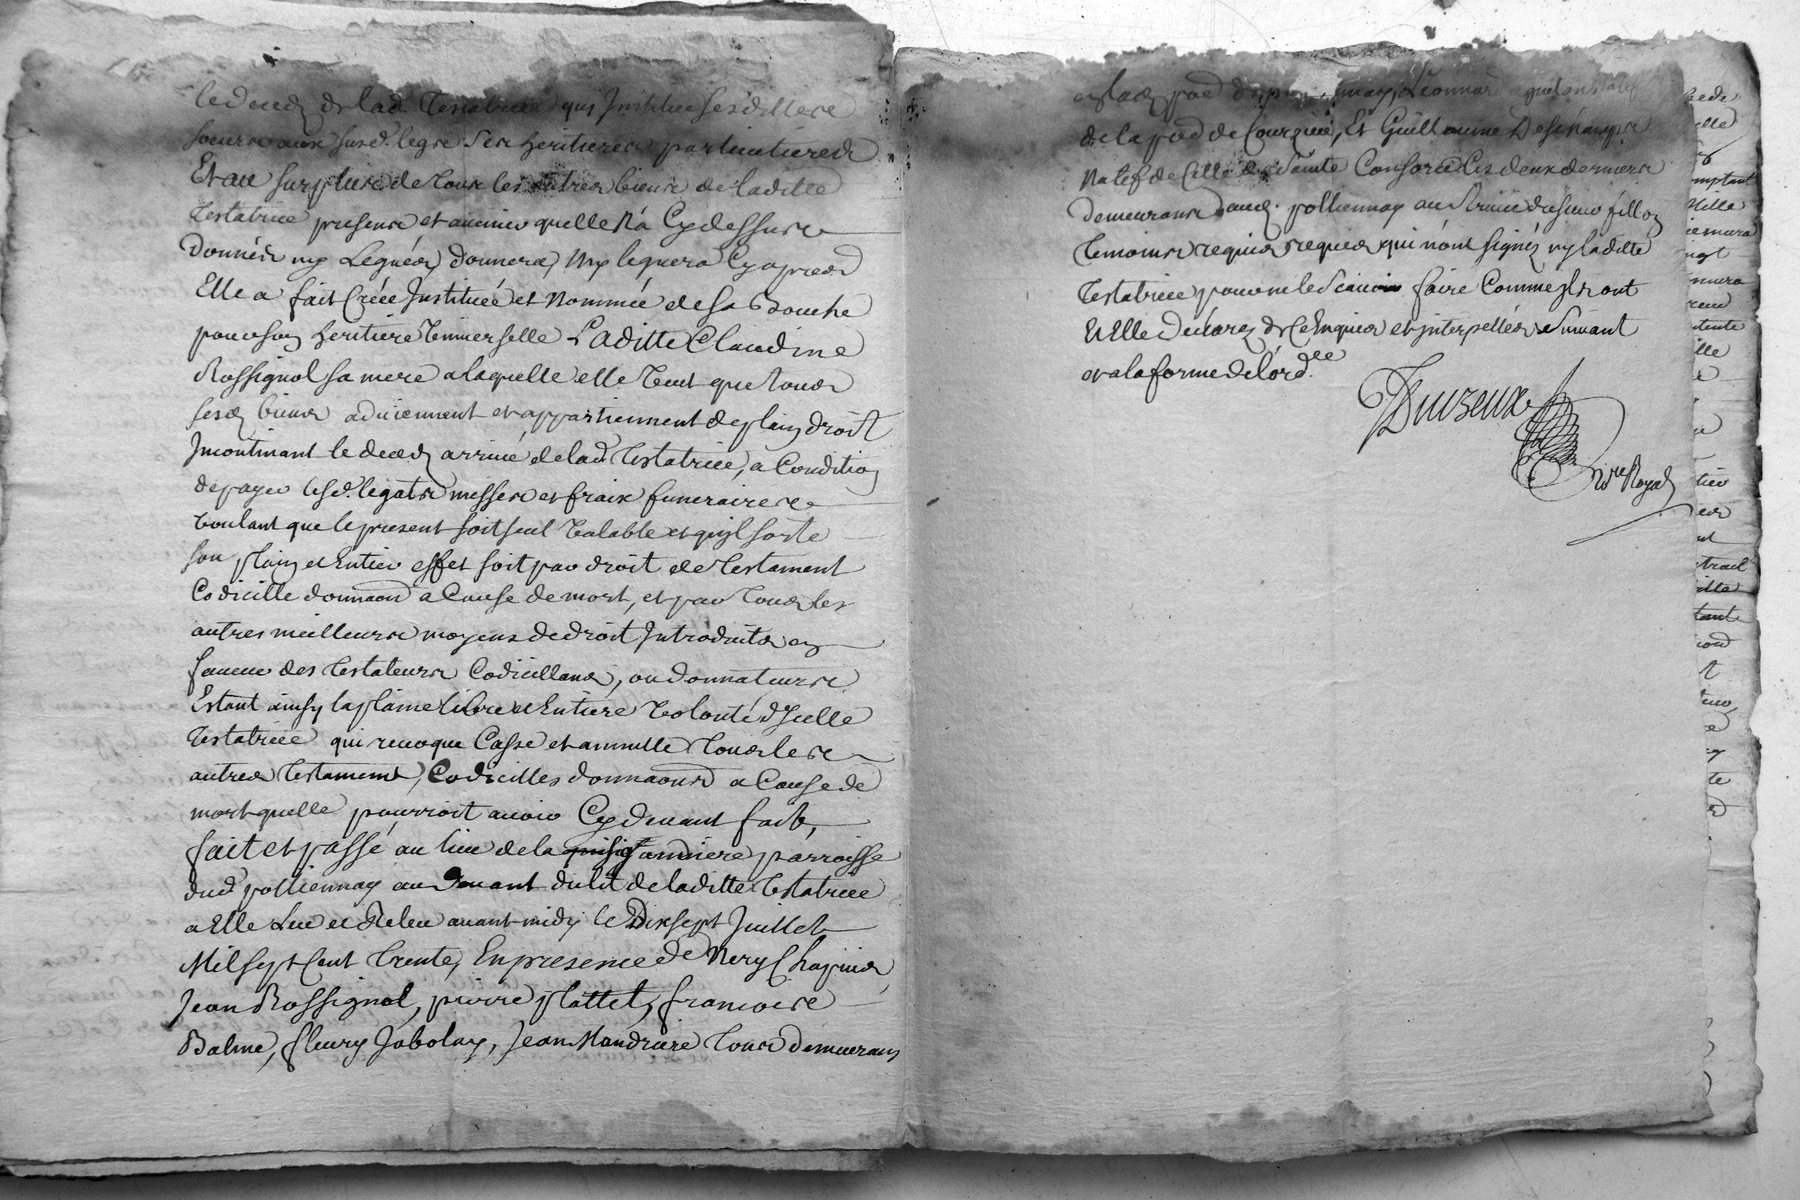 le deced de lad. Testatrice qui Institue sesdittes
soeurs aux susd. legs ses heritieres particulieres
Et au surplus de tous les autres biens de laditte
Testatrice presens et avenir quelle n'a Cy dessus
donnés ny Legués, donnera, ny leguera Cy apres
Elle a fait Créé Institueé et Nommée de sa Bouche
pour son heritiere Universelle Laditte Claudine
Rossignol sa mere a laquelle elle Veut que tous
sesd. biens adviennent et appartiennent de plain droit
Incontinant le deced arrivé de lad. Testatrice, a Condition
de payer lesd. legats messes et fraix funeraires
Voulant que le present soit seul Valable et quil sorte
son plain et Entier effet soit par droit de Testament
Codicille donnaon a Cause de mort, et par tous les
autres meilleurs moyens de droit Introduits en
faveur des Testateurs Codicillans, ou donnateurs
Estant ainsy la plaine libre et Entiere Volonté d'Icelle
Testatrice qui revoque Casse et annulle tous les
autres Testament, Codicilles donnaons a Cause de
mort quelle pourroit avoir Cy devant fait,
fait et passé au lieu de la parroisse
dud. pollionnay au devant du lit de laditte Testatrice
a Elle Leu et Releu avant midy le Dix sept Juillet
Mil sept Cent Trente, En presence de Nery Chapuis
Jean Rossignol, pierre plattet, francois
Balme, fleury Jabolay, Jean Mandriere tous demeurans
Léonnard natif
de la pod de Courzieu, Et Guillaume Deschamps
Natif de Celle de Sainte Consorce les deux derniers
demeurans aud. pollionnay au service du sieur fillon
temoins requis requis qui n'ont signéz ny laditte
Testatrice pour ne le scavoir faire Comme Ils ont
Et Elle declarez de Ce Enquis et interpellés suivant
et a la forme de l'ord.ce
Duvzeux
n.re Royal